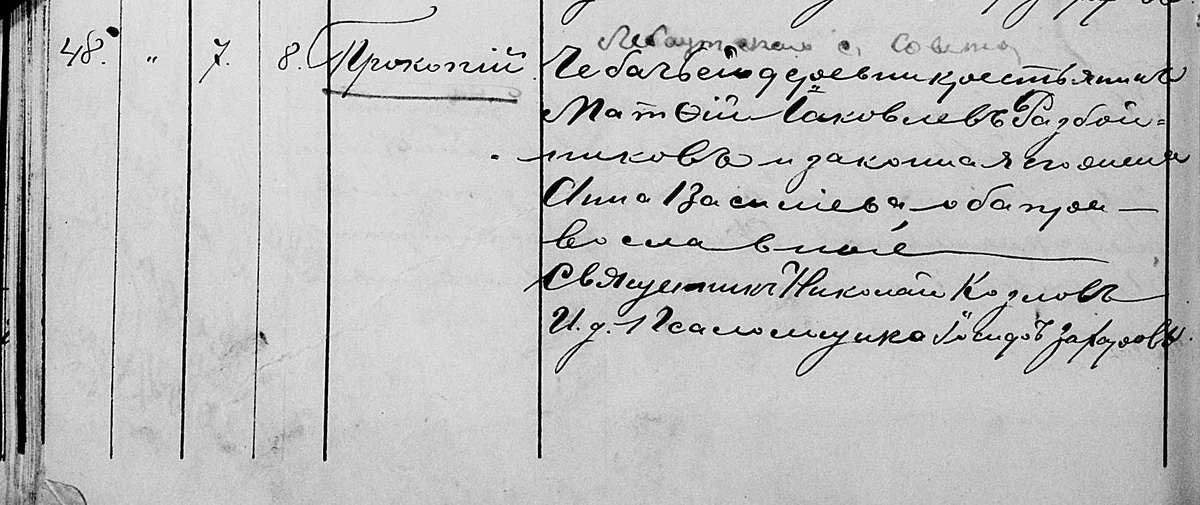 48. " 7. 8. Прокопій
с. Совета
Чебачьей деревни крестьянинъ
Матѳій Яковлевъ Разбой=
никовъ и законная его жена
Анна Василіева оба пра—
вославные
Священникъ Николай Козловъ
И. д. Псаломщика Іосифъ Захаровъ.